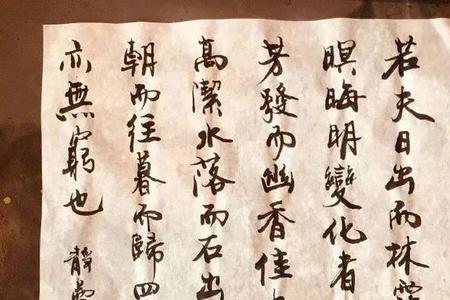 若夫日出而林
暝晦明變化者
芳發而幽香佳
高潔水落而石出
朝而往暮而歸四
亦無窮也
靜